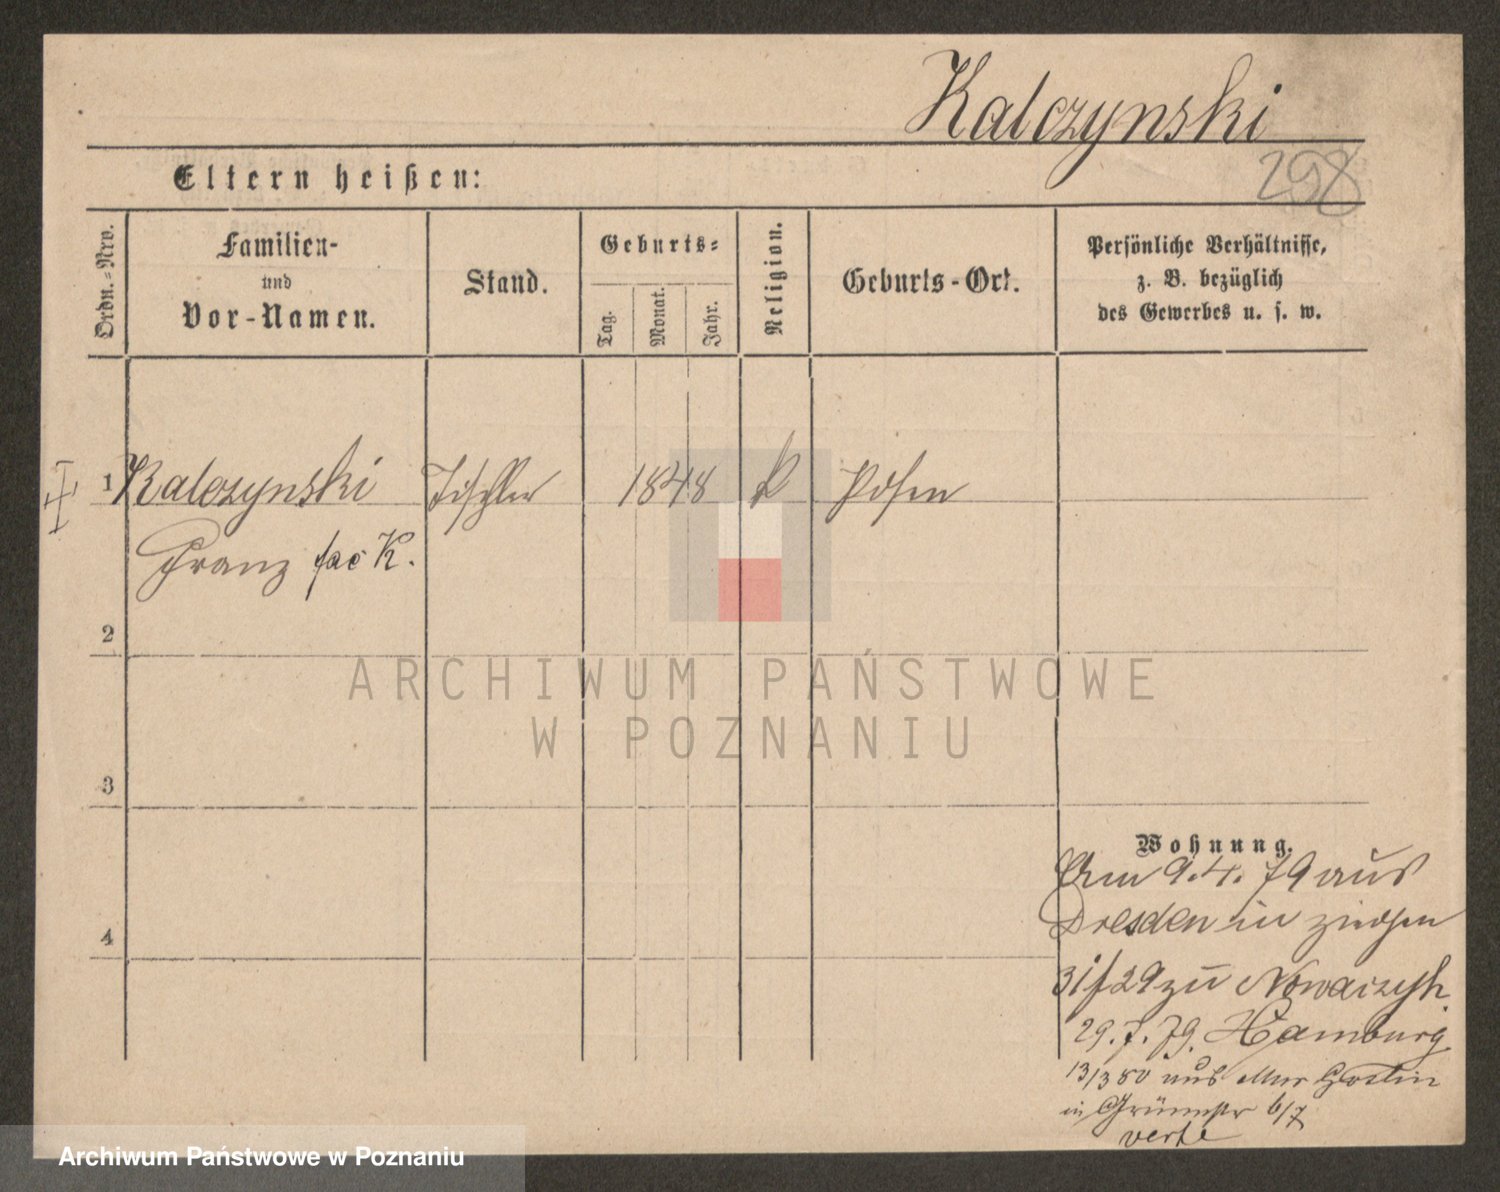 Kalczynski
298
Eltern heißen:
Ordn.-Nro.
Familien-
und
Vor-Namen.
Stand.
Geburts-
Tag.
Monat.
Jahr.
Religion.
Geburts-Ort.
Persönliche Verhältnisse,
z. B. bezüglich
des Gewerbes u. s. w.
1 Kalczynski Tischler 1848 k Posen
Franz K.
2
3
4
Wohnung.
Am 9.4.79 aus
Dresden in
zu Nowaczyk
29.7.79. Hamburg
13/3 80 aus Gostin
in 6/7
verte
ARCHIWUM PAŃSTWOWE
W POZNANIU
Archiwum Państwowe w Poznaniu